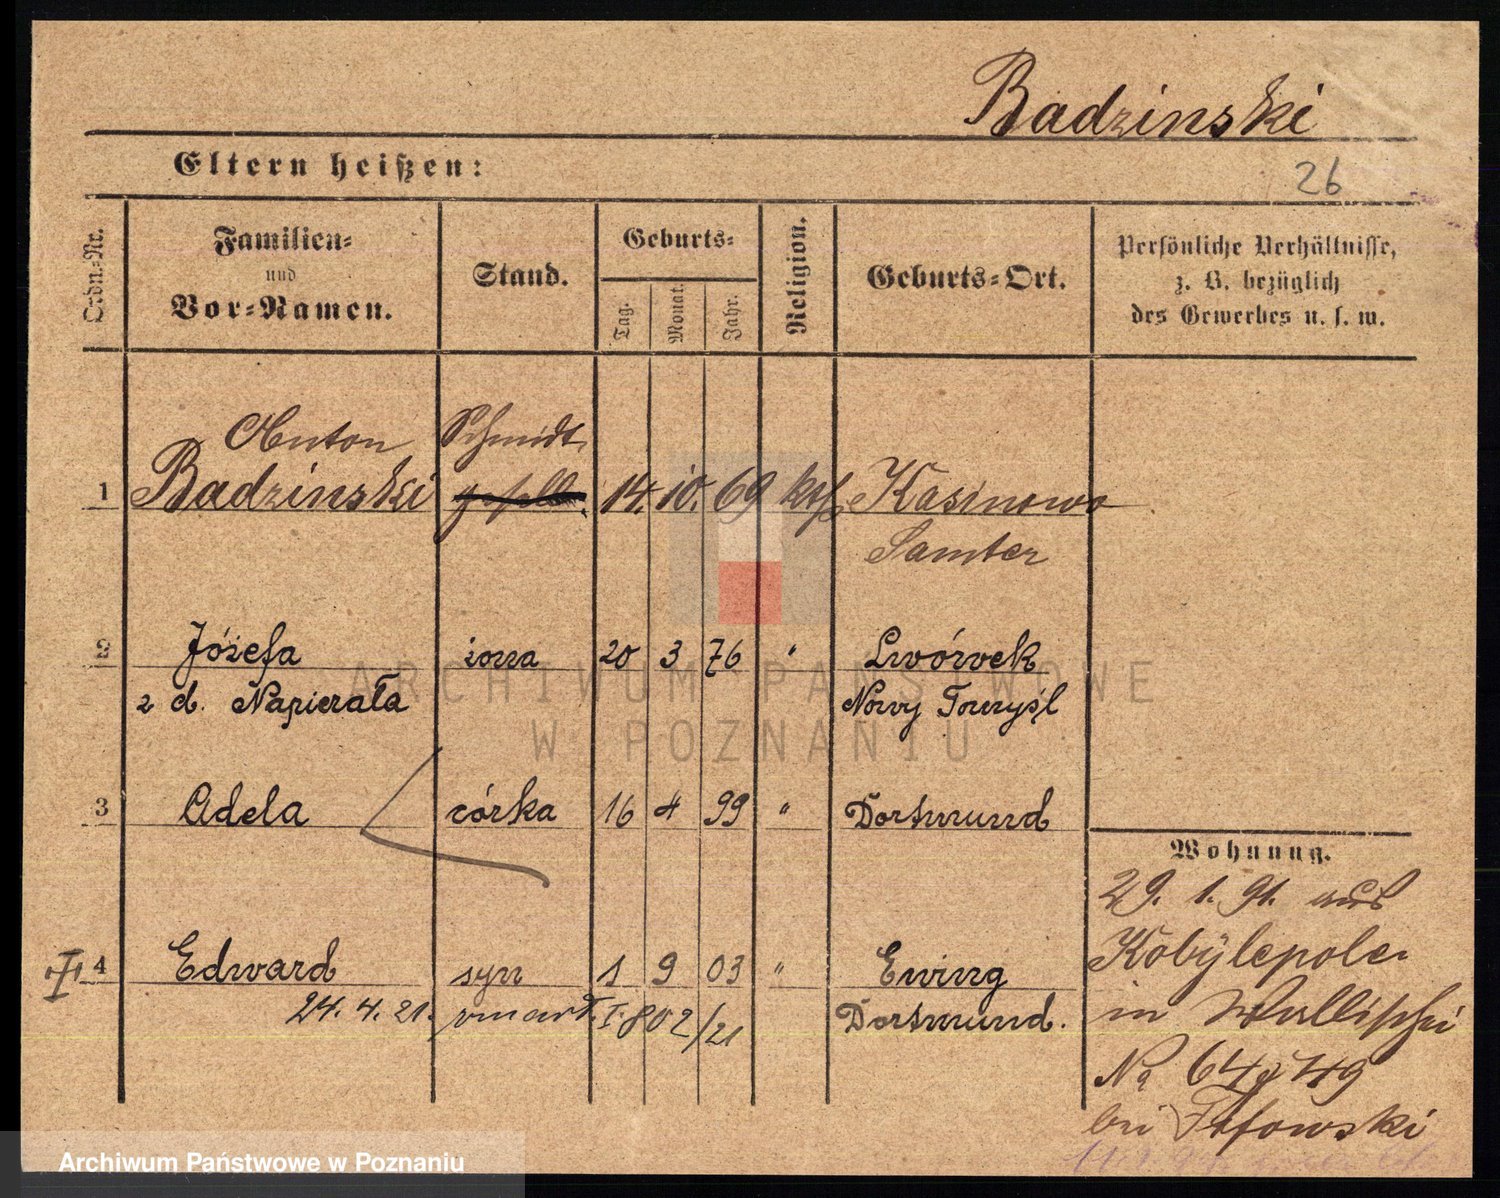 Badzinski
Eltern heißen:
26
Ordn.-Nr.
Familien-
und
Vor-Namen.
Stand.
Geburts-
Tag.
Monat.
Jahr.
Religion.
Geburts-Ort.
Persönliche Verhältnisse,
z. B. bezüglich
des Gewerbes u. s. w.
Anton Schmidt
1 Badzinski 14. 10. 69 kth Kasinowo
Samter
2 Józefa żona 20 3 76 " Lwówek
z d. Napierała Nowy Tomyśl
3 Adela córka 16 4 99 " Dortmund
Wohnung.
29. 1. 91. aus
Kobylepole
in Wallischei
No 64/49
bei
4 Edward syn 1 9 03 " Ewing
24. 4. 21. zmarł. I. 802/21 Dortmund.
ARCHIWUM PAŃSTWOWE
W POZNANIU
Archiwum Państwowe w Poznaniu